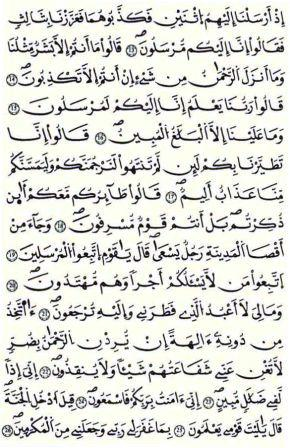 إِذَ اَرْسَلْنَا إِلَيْهِمُ اُثْنَيْنِ فَكَذَّبُوهُمَا فَعَزَّزْنَا بِثَالِثٍ
فَقَالُوا إِنَّا إِلَيْكُم مُّرْسَلُونَ ١٣ قَالُوا مَا أَنتُمْ إِلَّا بَشَرٌ مِّثْلُنَا
وَمَا أَنزَلَ الرَّحْمَٰنُ مِن شَيْءٍ اِنْ أَنتُمْ إِلَّا تَكْذِبُونَ ١٤
قَالُوا رَبُّنَا يَعْلَمُ إِنَّا إِلَيْكُمْ لَمُرْسَلُونَ ١٥
وَمَا عَلَيْنَا إِلَّا الْبَلَٰغُ الْمُبِينُ ١٦ قَالُوا إِنَّا
تَطَيَّرْنَا بِكُمْ لَئِن لَّمْ تَنتَهُوا لَنَرْجُمَنَّكُمْ وَلَيَمَسَّنَّكُم
مِّنَّا عَذَابٌ اَلِيمٌ ١٧ قَالُوا طَٰئِرُكُم مَّعَكُمْ أَئِن
ذُكِّرْتُم بَلْ أَنتُمْ قَوْمٌ مُّسْرِفُونَ ١٨ وَجَاءَ مِنْ
أَقْصَا الْمَدِينَةِ رَجُلٌ يَسْعَىٰ قَالَ يَٰقَوْمِ اِتَّبِعُوا الْمُرْسَلِينَ ١٩
اَتَّبِعُوا مَن لَّا يَسْـَٔلُكُمْ أَجْرًا وَهُم مُّهْتَدُونَ ٢٠
وَمَا لِيَ لَا أَعْبُدُ الَّذِي فَطَرَنِي وَإِلَيْهِ تُرْجَعُونَ ٢١ ءَآتَّخِذُ
مِن دُونِهِ ءَالِهَةً إِنْ يُّرِدْنِ الرَّحْمَٰنُ بِضُرٍّ
لَّا تُغْنِ عَنِّي شَفَٰعَتُهُمْ شَيْـًٔا وَلَا يُنقِذُونِ ٢٢ إِنِّيَ إِذًا
لَّفِي ضَلَٰلٍ مُّبِينٍ ٢٣ اِنِّيَ ءَامَنتُ بِرَبِّكُمْ فَاسْمَعُونِ ٢٤ قِيلَ اَدْخُلِ الْجَنَّةَ
قَالَ يَٰلَيْتَ قَوْمِي يَعْلَمُونَ ٢٥ بِمَا غَفَرَ لِي رَبِّي وَجَعَلَنِي مِنَ الْمُكْرَمِينَ ٢٦